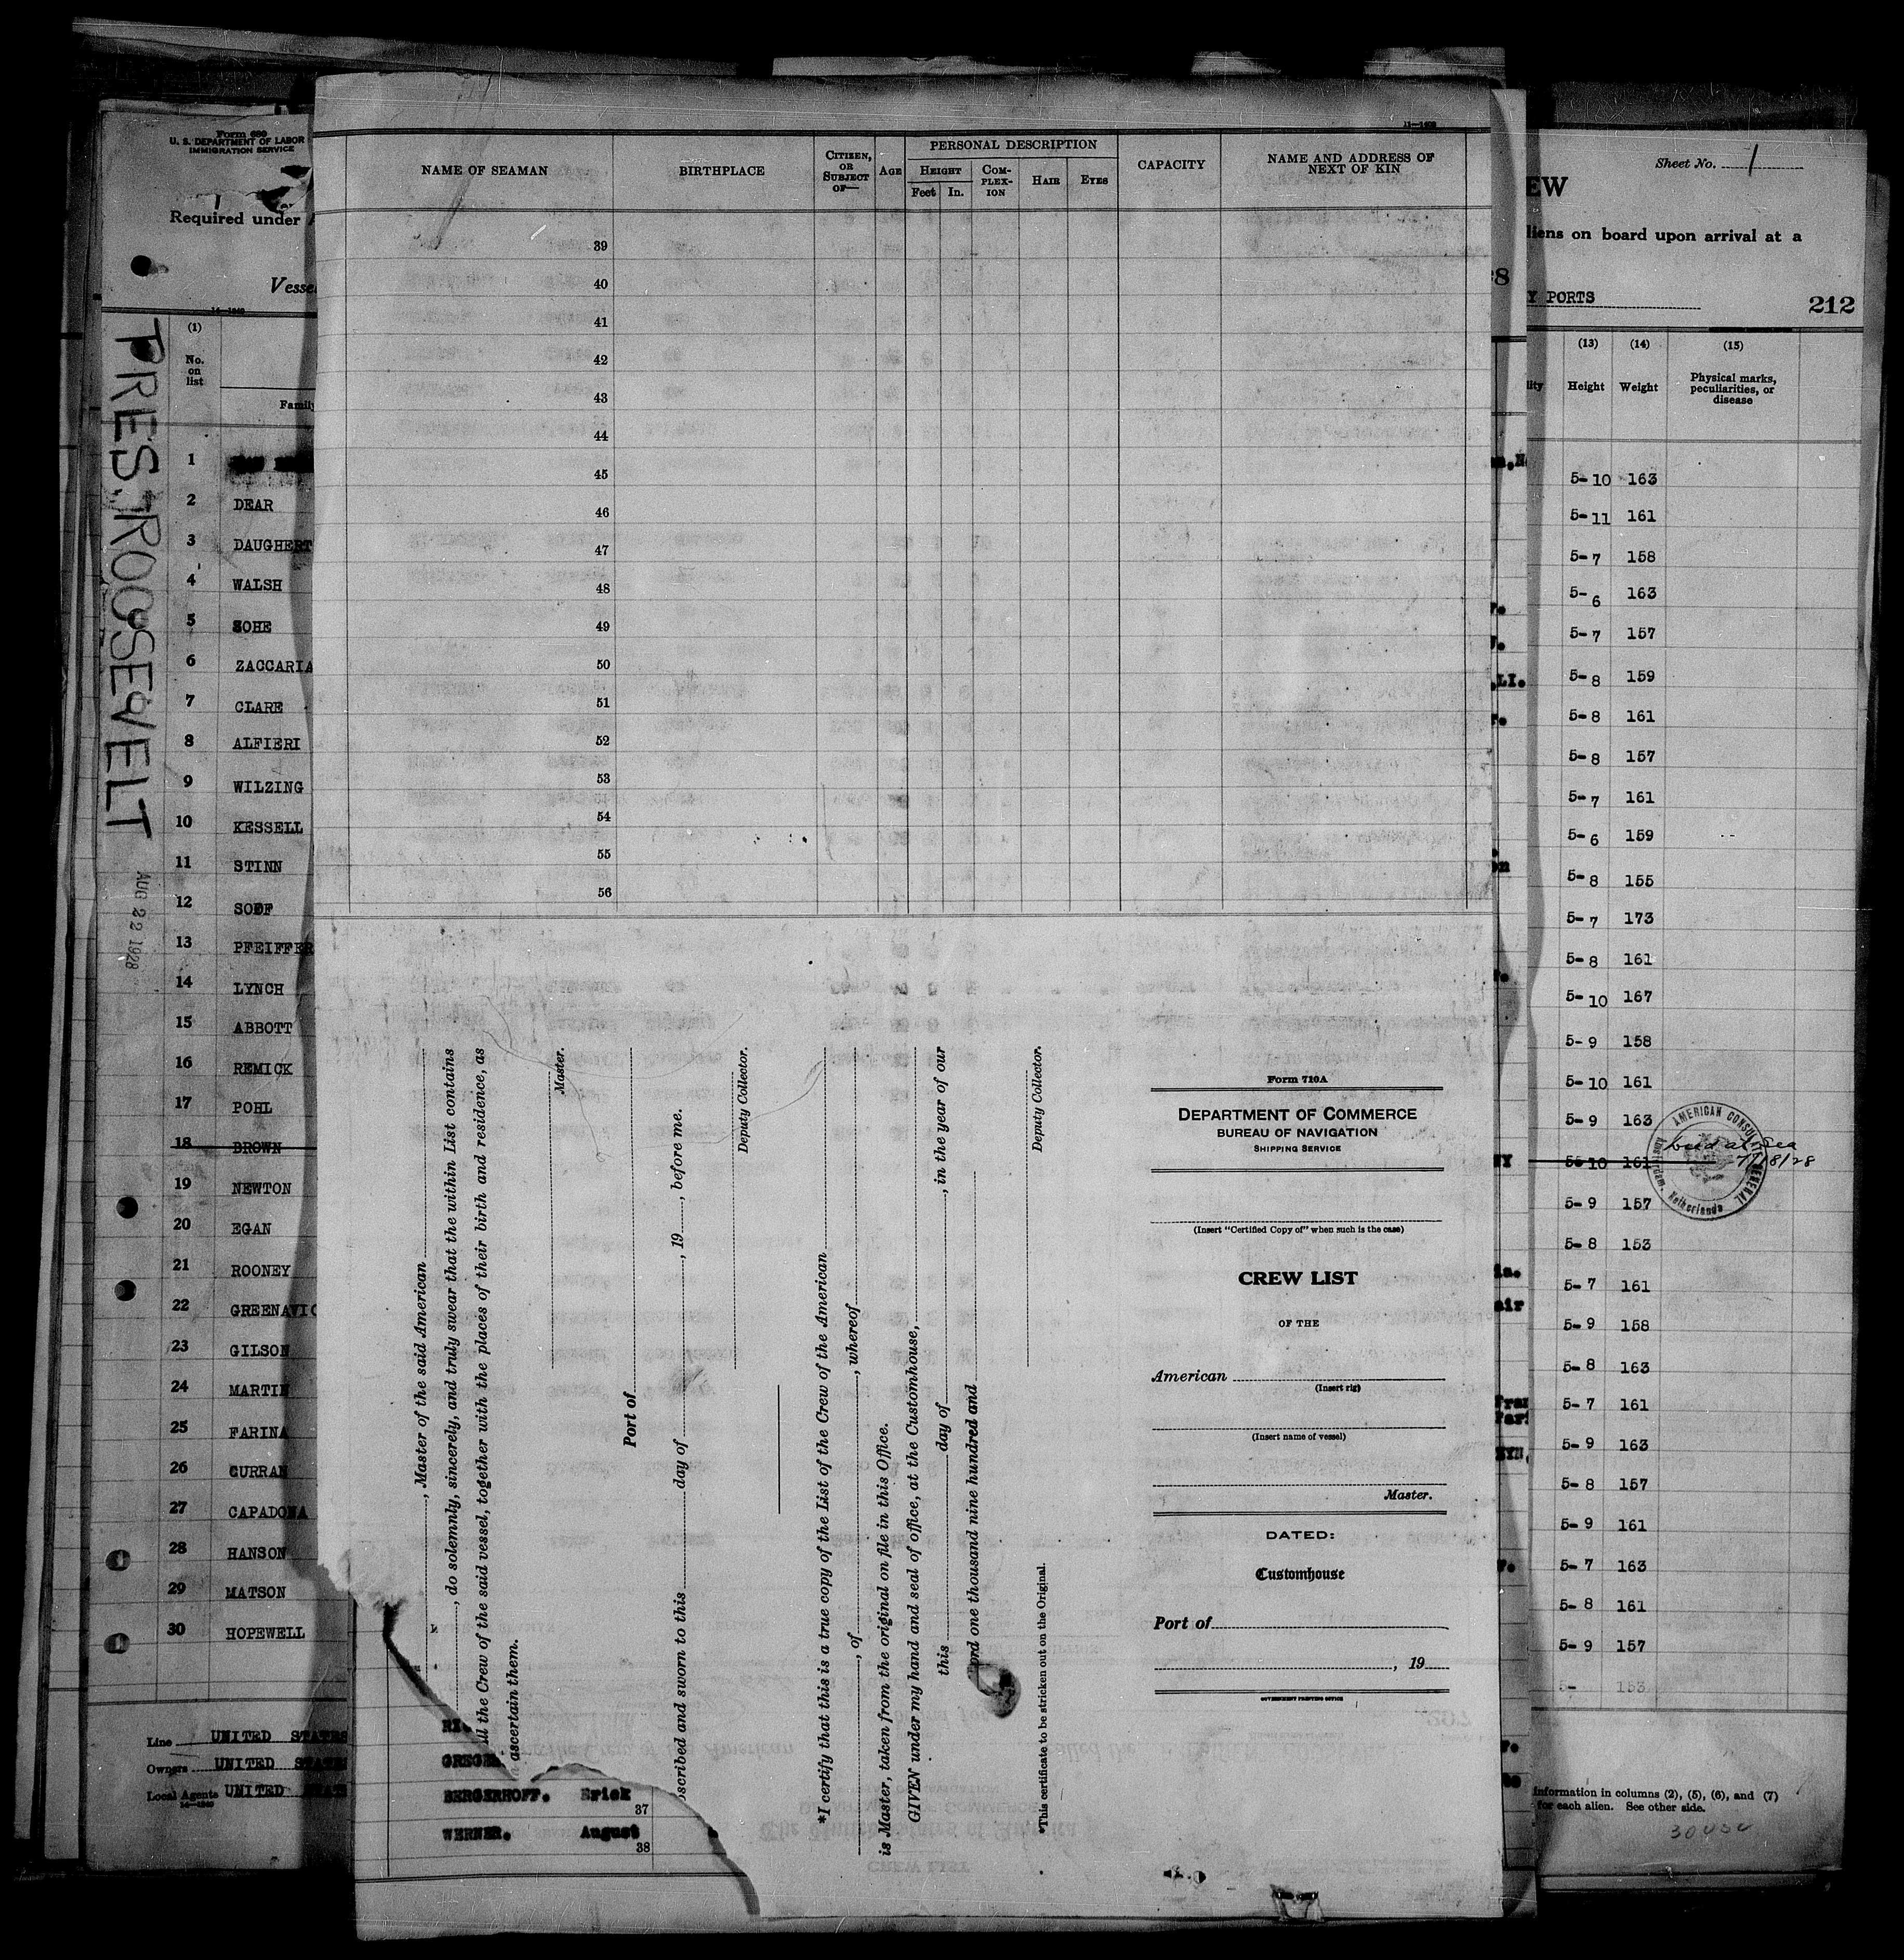 Form 689
U. S. DEPARTMENT OF LABOR
IMMIGRATION SERVICE
Required under
Vesse
14—1240
(1)
No.
on
list
Family
PRES. ROOSEVELT
AUG 22 1928
1
2 DEAR
3 DAUGHERT
4 WALSH
5 SOHE
6 ZACCARIA
7 CLARE
8 ALFIERI
9 WILZING
10 KESSELL
11 STINN
12 SOOF
13 PFEIFFER
14 LYNCH
15 ABBOTT
16 REMICK
17 POHL
18 BROWN
19 NEWTON
20 EGAN
21 ROONEY
22 GREENAVIC
23 GILSON
24 MARTIN
25 FARINA
26 CURRAN
27 CAPADONA
28 HANSON
29 MATSON
30 HOPEWELL
Line UNITED STATES
Owners UNITED STATE
Local Agents UNITED STATE
11—1403
NAME OF SEAMAN
BIRTHPLACE
CITIZEN,
OR
SUBJECT
OF—
AGE
PERSONAL DESCRIPTION
HEIGHT
Feet In.
COM-
PLEX-
ION
HAIR
EYES
CAPACITY
NAME AND ADDRESS OF
NEXT OF KIN
39
40
41
42
43
44
45
46
47
48
49
50
51
52
53
54
55
56
, Master of the said American
, do solemnly, sincerely, and truly swear that the within List contains
all the Crew of the said vessel, together with the places of their birth and residence, as
ascertain them.
Master.
Port of
bscribed and sworn to this day of , 19 , before me.
Deputy Collector.
*I certify that this is a true copy of the List of the Crew of the American
, of , whereof
is Master, taken from the original on file in this Office.
GIVEN under my hand and seal of office, at the Customhouse,
this day of , in the year of our
ord one thousand nine hundred and
Deputy Collector.
*This certificate to be stricken out on the Original.
Form 710A
DEPARTMENT OF COMMERCE
BUREAU OF NAVIGATION
SHIPPING SERVICE
(Insert "Certified Copy of" when such is the case)
CREW LIST
OF THE
American
(Insert rig)
(Insert name of vessel)
Master.
DATED:
Customhouse
Port of
, 19
GOVERNMENT PRINTING OFFICE
GREGE
BERGERHOFF. Erick
37
WERNER. August
38
Sheet No. 1
EW
liens on board upon arrival at a
Y PORTS
212
(13) (14) (15)
lity
Height Weight
Physical marks,
peculiarities, or
disease
5-10 163
5-11 161
5-7 158
5-6 163
5-7 157
5-8 159
5-8 161
5-8 157
5-7 161
5-6 159
5-8 155
5-7 173
5-8 161
5-10 167
5-9 158
5-10 161
5-9 163
5-10 161
5-9 157
5-8 153
5-7 161
5-9 158
5-8 163
5-7 161
5-9 163
5-8 157
5-9 161
5-7 163
5-8 161
5-9 157
5- 153
AMERICAN CONSULATE GENERAL
Amsterdam, Netherlands
at Sea
7/18/28
LI.
information in columns (2), (5), (6), and (7)
for each alien. See other side.